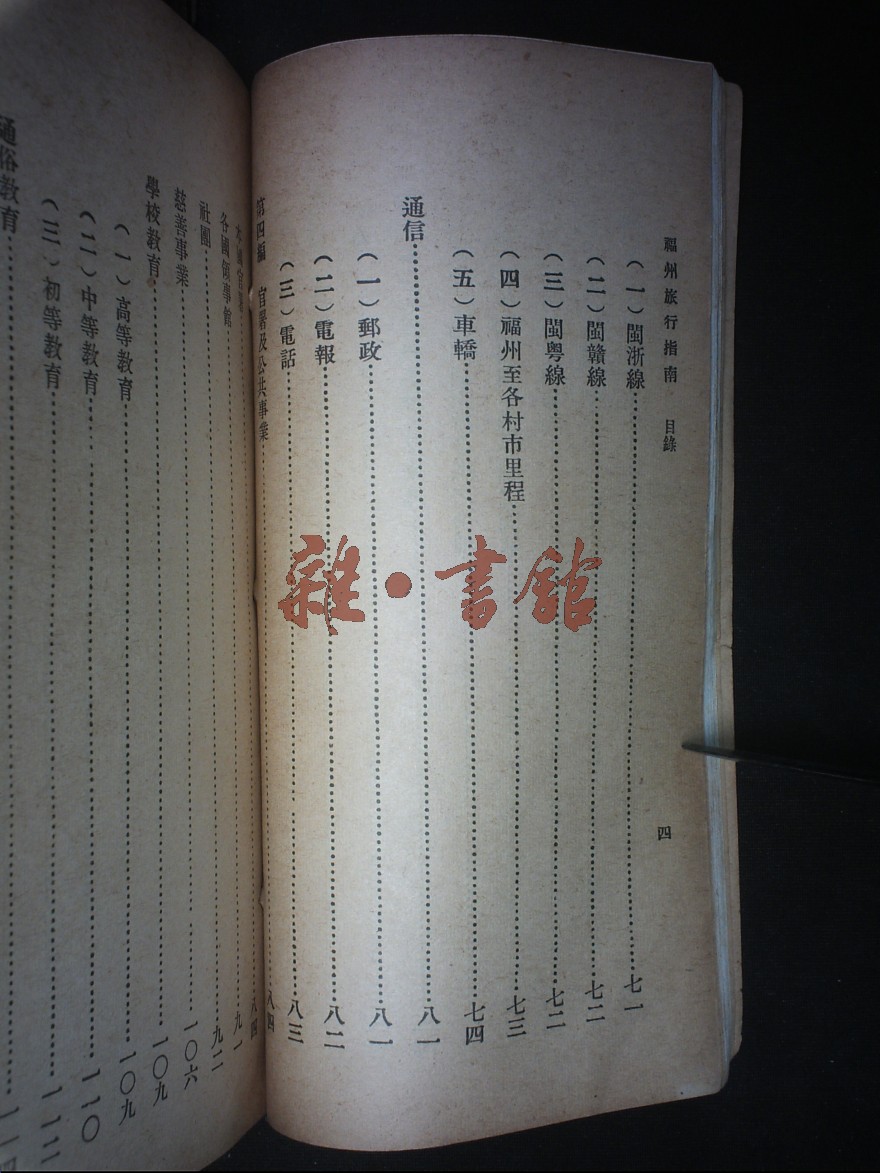 福州旅行指南 目錄 四
(一)閩浙線……七一
(二)閩贛線……七二
(三)閩粤線……七二
(四)福州至各村市里程……七三
(五)車轎……七四
通信……八一
(一)郵政……八一
(二)電報……八二
(三)電話……八三
第四編 官署及公共事業……八四
本國官署……八四
各國領事館……九一
社團……九二
慈善事業……一〇六
學校教育……一〇九
(一)高等教育……一〇九
(二)中等教育……一一〇
(三)初等教育……一一二
通俗教育……一一四
雜·書館